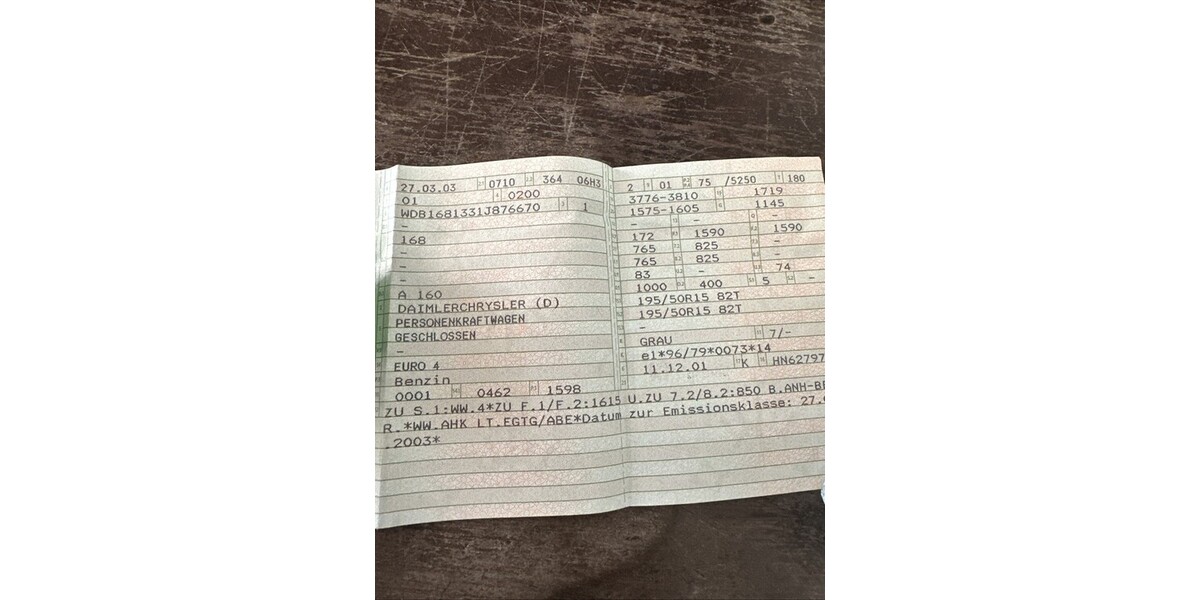 27.03.03 0710 364 06H3
01 0200
WDB1681331J876670 1
-
168
-
-
-
A 160
DAIMLERCHRYSLER (D)
PERSONENKRAFTWAGEN
GESCHLOSSEN
-
EURO 4
Benzin
0001 0462 1598
2 01 75 /5250 180
3776-3810 1719
1575-1605 1145
- - -
172 1590 1590
765 825 -
765 825 -
83 - 74
1000 400 5 -
195/50R15 82T
195/50R15 82T
-
GRAU 7/-
e1*96/79*0073*14
11.12.01 K HN62797
ZU S.1:WW.4*ZU F.1/F.2:1615 U.ZU 7.2/8.2:850 B.ANH-BE
R.*WW.AHK LT.EGTG/ABE*Datum zur Emissionsklasse: 27.
.2003*